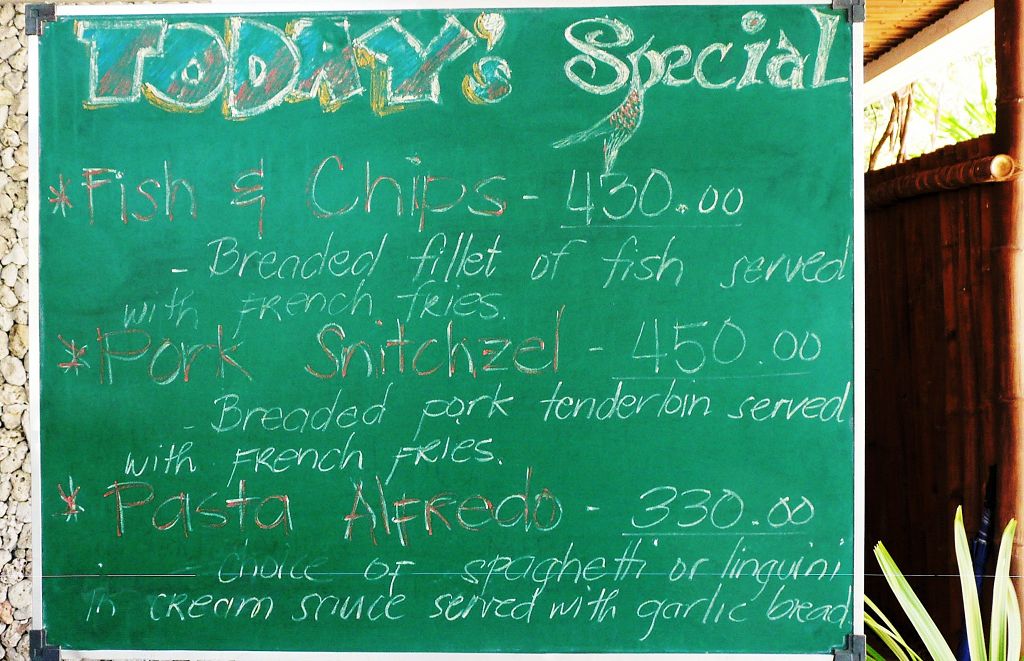 TODAY's Special
* Fish & Chips - 430.00
- Breaded fillet of fish served
with French fries.
* Pork Snitchzel - 450.00
- Breaded pork tenderloin served
with French fries.
* Pasta Alfredo - 330.00
- choice of spaghetti or linguini
in cream sauce served with garlic bread.